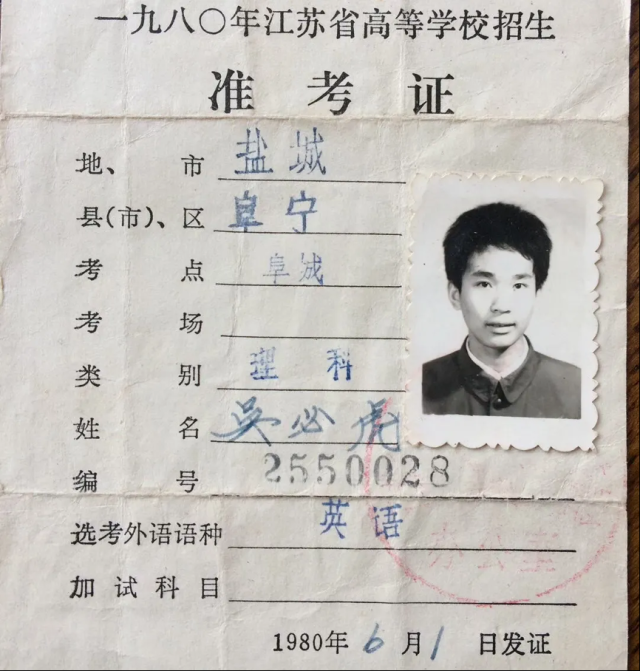 一九八〇年江苏省高等学校招生
准考证
地、市 盐城
县(市)、区 阜宁
考点 阜城
考场
类别 理科
姓名 吴必虎
编号 2550028
选考外语语种 英语
加试科目
办公室
1980年6月1日发证